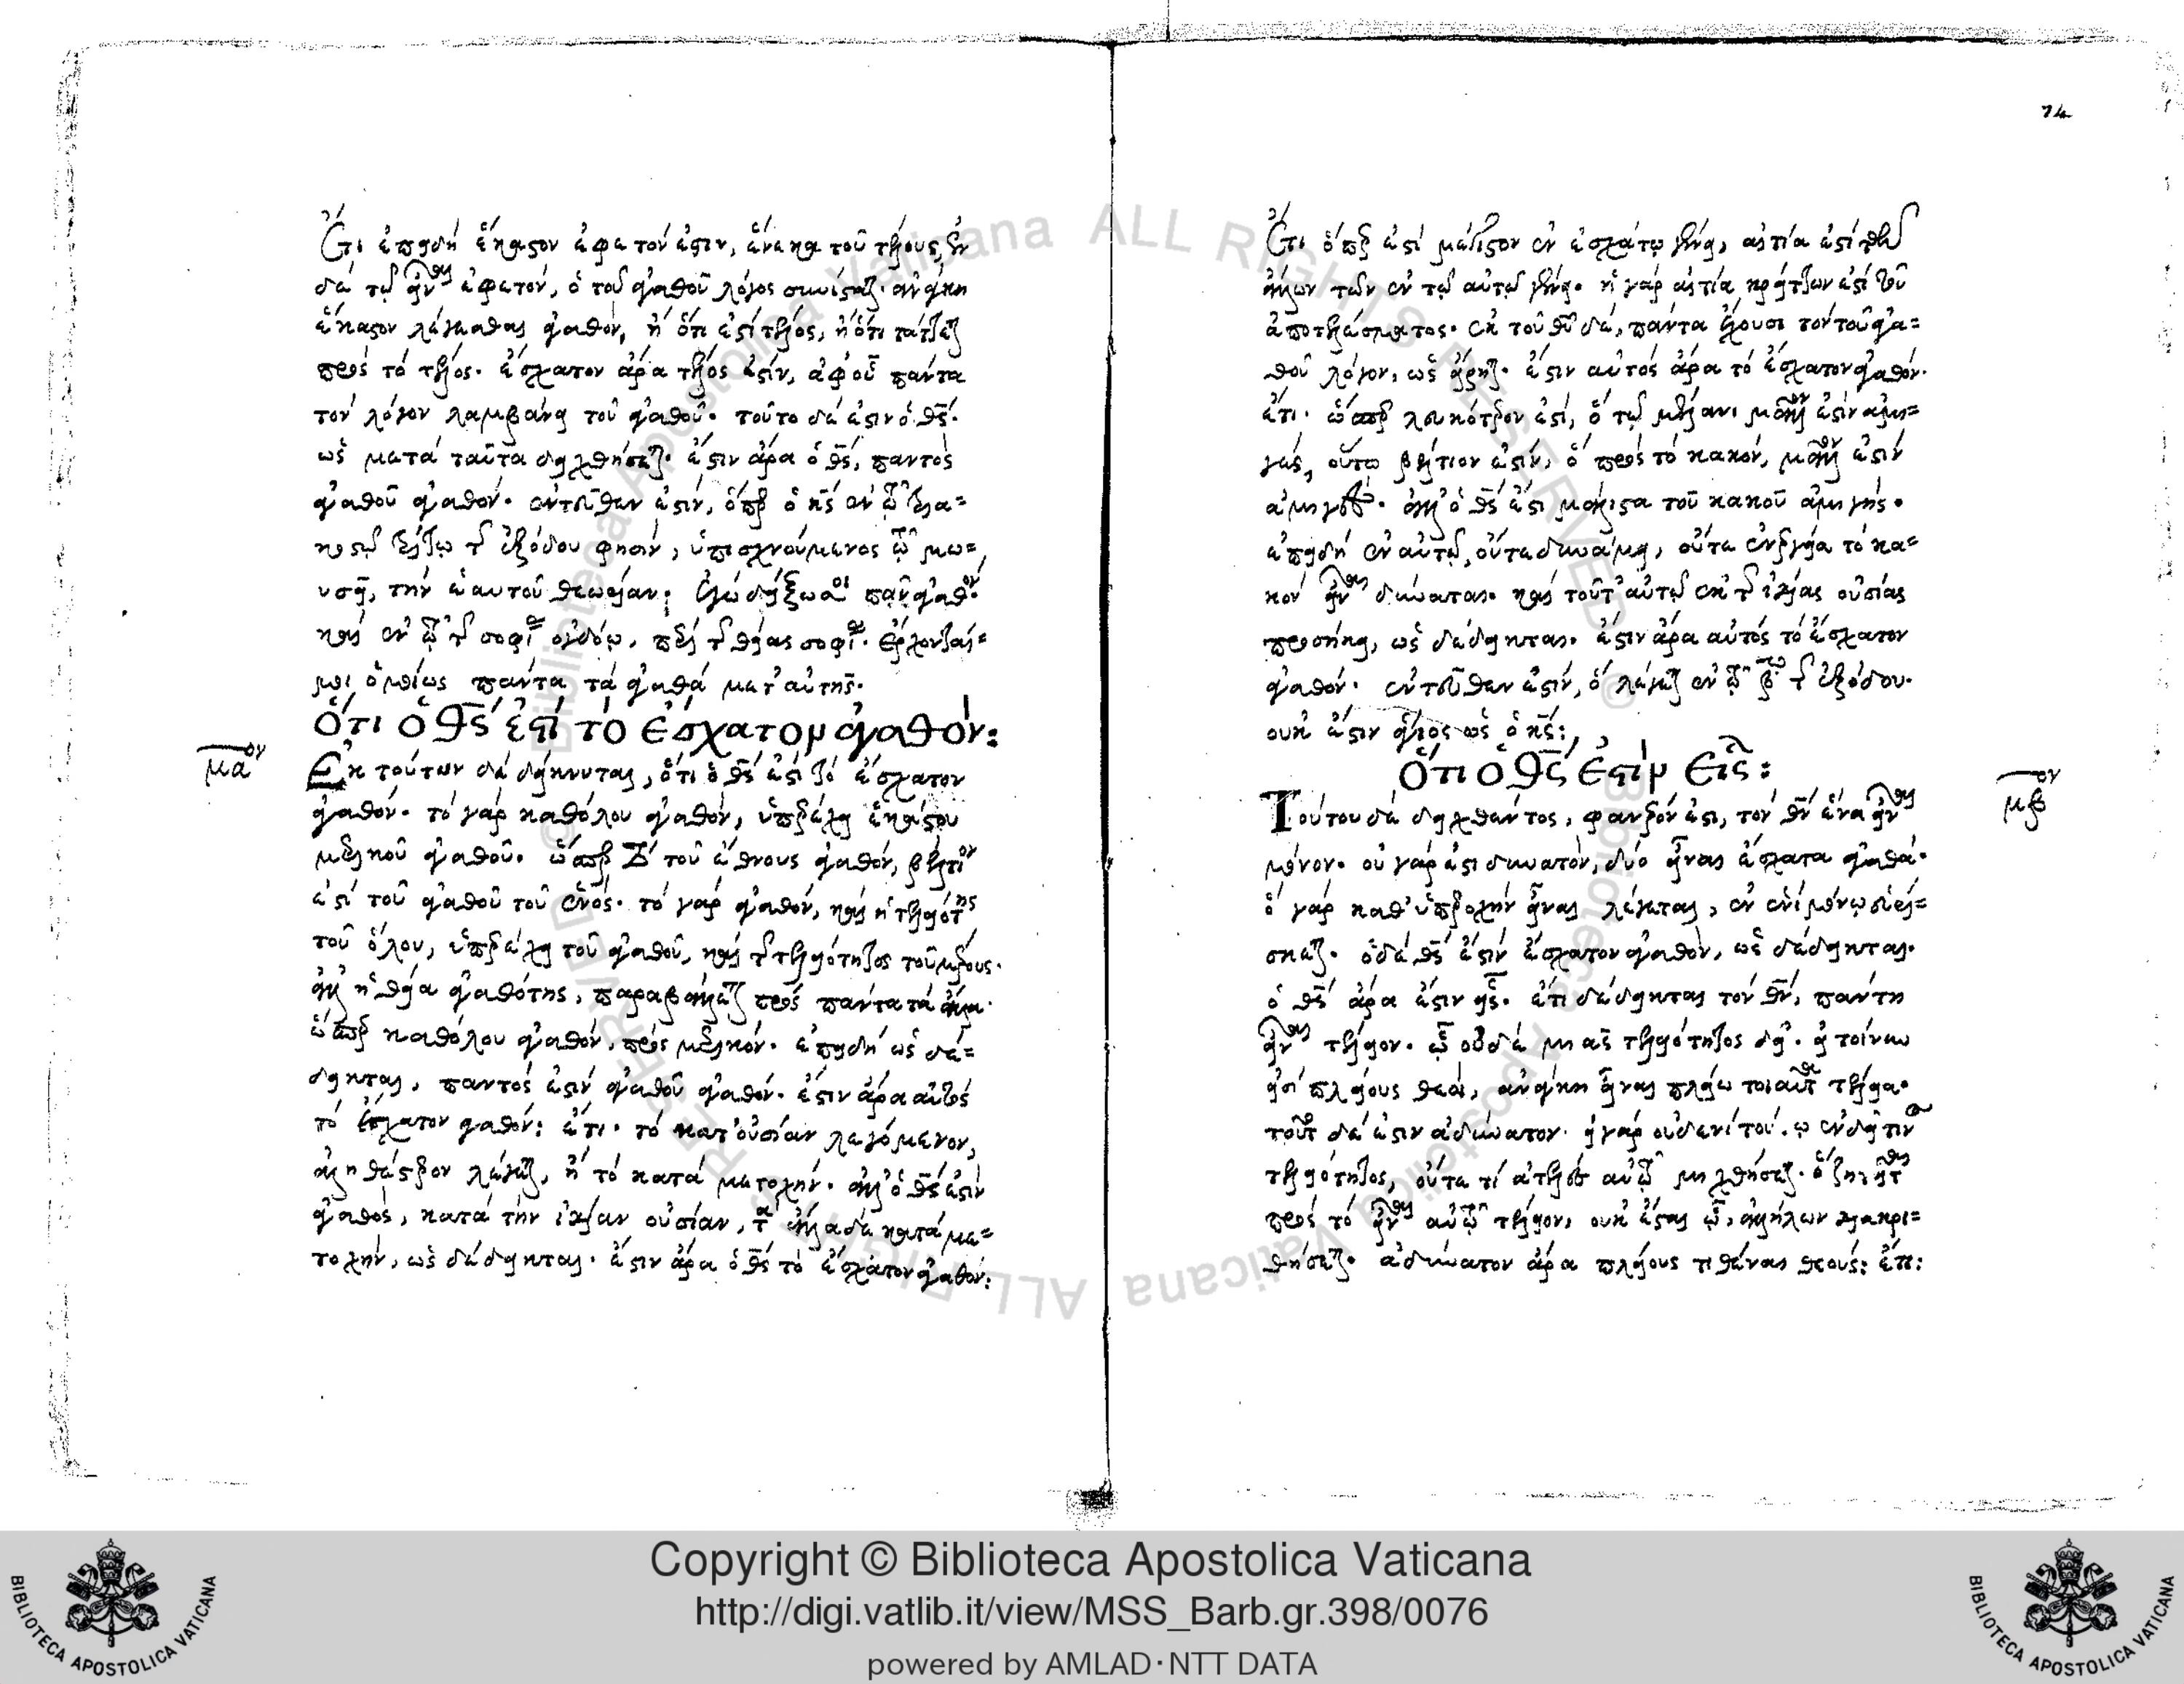 74
Ὅτι ἐπειδὴ ἕκαστον ἐφετόν ἐστιν, ἕνεκα τοῦ τέλους, ἐν
δὲ τῷ εἶναι ἐφετόν, ὁ τοῦ ἀγαθοῦ λόγος συνίσταται. ἀνάγκη
ἕκαστον λέγεσθαι ἀγαθόν, ἢ ὅτι ἐστὶ τέλος, ἢ ὅτι τάττεται
πρὸς τὸ τέλος. ἔσχατον ἄρα τέλος ἐστίν, ἀφ' οὗ πάντα
τὸν λόγον λαμβάνει τοῦ ἀγαθοῦ. τοῦτο δέ ἐστιν ὁ θς.
ὡς μετὰ ταῦτα δειχθήσεται. ἔστιν ἄρα ὁ θς, παντὸς
ἀγαθοῦ ἀγαθόν. ἐντεῦθεν ἐστίν, ὅπερ ὁ κς ἐν τῷ τρια=
κοστῷ τρίτῳ τῆς ἐξόδου φησίν, ὑπισχνούμενος τῷ μω=
υσῇ, τὴν ἑαυτοῦ θεωρίαν; Ἐγὼ δείξω σοι πᾶν ἀγαθόν.
καὶ ἐν τῷ τῆς σοφίας ὀγδόῳ, περὶ τῆς θείας σοφίας. ἔρχονταί=
μοι ὁμοίως πάντα τὰ ἀγαθὰ μετ' αὐτῆς.
Ὅτι ὁ θς ἐστὶ τὸ ἔσχατον ἀγαθόν:
μα ον
Ἐκ τούτων δὲ δείκνυται, ὅτι ὁ θς ἐστὶ τὸ ἔσχατον
ἀγαθόν. τὸ γὰρ καθόλου ἀγαθόν, ὑπερέχει ἑκάστου
μερικοῦ ἀγαθοῦ. ὥσπερ τὸ τοῦ ἔθνους ἀγαθόν, βέλτιον
ἐστὶ τοῦ ἀγαθοῦ τοῦ ἑνός. τὸ γὰρ ἀγαθόν, καὶ ἡ τελειότης
τοῦ ὅλου, ὑπερέχει τοῦ ἀγαθοῦ, καὶ τῆς τελειότητος τοῦ μέρους.
ἀλλ' ἡ θεία ἀγαθότης, παραβάλλεται πρὸς πάντα τὰ ἄλλα.
ὥσπερ καθόλου ἀγαθόν, πρὸς μερικόν. ἐπειδὴ ὡς δέ=
δεικται, παντός ἐστιν ἀγαθοῦ ἀγαθόν. ἔστιν ἄρα αὐτὸς
τὸ ἔσχατον ἀγαθόν: ἔτι. τὸ κατ' οὐσίαν λεγόμενον,
ἀληθέστερον λέγεται, ἢ τὸ κατὰ μετοχήν. ἀλλ' ὁ θς ἐστὶν
ἀγαθὸς, κατὰ τὴν ἰδίαν οὐσίαν, τὰ ἄλλα δὲ κατὰ με=
τοχήν, ὡς δέδεικται. ἔστιν ἄρα ὁ θς τὸ ἔσχατον ἀγαθόν:
Ὅτι ὅπερ ἐστὶ μέγιστον ἐν ἑκάστῳ γένει, αἰτία ἐστὶ τῶν
ἄλλων τῶν ἐν τῷ αὐτῷ γένει. ἡ γὰρ αἰτία κρείττων ἐστὶ τοῦ
ἀποτελέσματος. ἐκ τοῦ θυ δὲ, πάντα ἔχουσι τὸν τοῦ ἀγα=
θοῦ λόγον, ὡς εἴρηται. ἔστιν αὐτὸς ἄρα τὸ ἔσχατον ἀγαθόν.
ἔτι. ὥσπερ λευκότερόν ἐστι, ὃ τῷ μέλανι μᾶλλόν ἐστιν ἀμι=
γές, οὕτω βέλτιον ἐστίν, ὃ πρὸς τὸ κακόν, μᾶλλόν ἐστιν
ἀμιγές. ἀλλ' ὁ θς ἐστὶ μάλιστα τοῦ κακοῦ ἀμιγής.
ἐπειδὴ ἐν αὐτῷ, οὔτε δυνάμει, οὔτε ἐνεργείᾳ τὸ κα=
κὸν εἶναι δύναται. καὶ τοῦτ' αὐτῷ ἐκ τῆς ἰδίας οὐσίας
προσήκει, ὡς δέδεικται. ἔστιν ἄρα αὐτὸς τὸ ἔσχατον
ἀγαθόν. ἐντεῦθεν ἐστίν, ὃ λέγεται ἐν τῷ β τῆς ἐξόδου.
οὐκ ἔστιν ἅγιος ὡς ὁ κς:
Ὅτι ὁ θς ἐστὶν εἷς:
μβ ον
Τούτου δὲ δειχθέντος, φανερόν ἐστι, τὸν θν ἕνα εἶναι
μόνον. οὐ γάρ ἐστι δυνατόν, δύο εἶναι ἔσχατα ἀγαθά.
ὃ γὰρ καθ' ὑπερβολὴν εἶναι λέγεται, ἐν ἑνὶ μόνῳ εὑρί=
σκεται. ὁ δὲ θς ἐστὶν ἔσχατον ἀγαθόν, ὡς δέδεικται.
ὁ θς ἄρα ἐστὶν εἷς. ἔτι δέδεικται τὸν θν, πάντη
εἶναι τέλειον. ᾧ οὐδὲ μιᾶς τελειότητος δεῖ. εἰ τοίνυν
εἰσὶ πλείους θεοί, ἀνάγκη εἶναι πλείω τοιαῦτα τέλεια.
τοῦτο δέ ἐστιν ἀδύνατον. εἰ γὰρ οὐδενὶ τούτῳ ἐνδεῖ τινος
τελειότητος, οὔτέ τι ἀτελὲς αὐτῷ μιχθήσεται. ὃ ζητεῖται
πρὸς τὸ εἶναι αὐτῷ τέλειον, οὐκ ἔσται ᾧ, ἀλλήλων διακρι=
θήσεται. ἀδύνατον ἄρα πλείους τιθέναι θεούς: ἔτι:
Copyright © Biblioteca Apostolica Vaticana
http://digi.vatlib.it/view/MSS_Barb.gr.398/0076
powered by AMLAD · NTT DATA